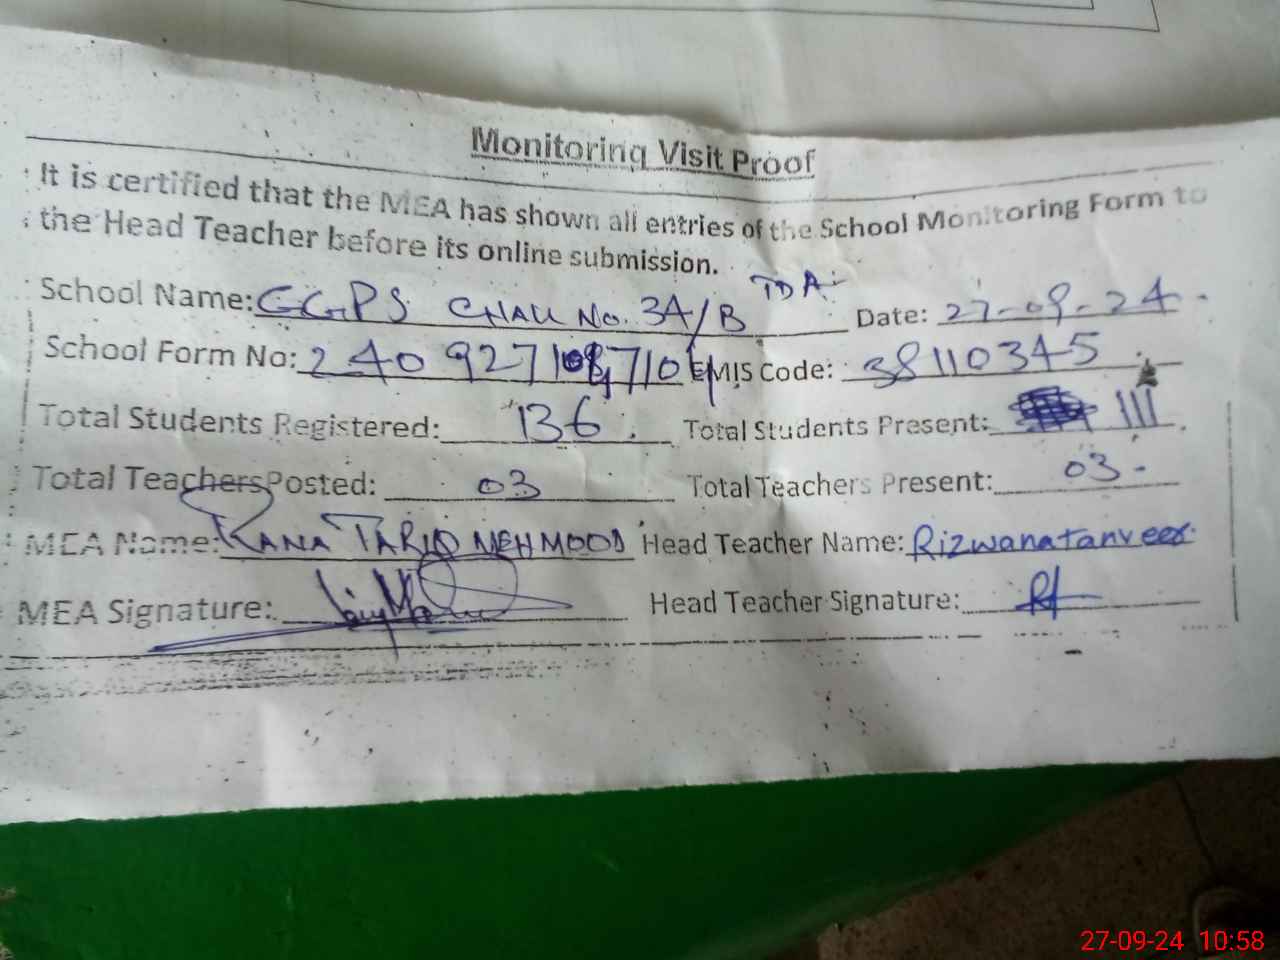 Monitoring Visit Proof
It is certified that the MEA has shown all entries of the School Monitoring Form to
the Head Teacher before its online submission.
School Name: GGPS CHAK No. 34/B TDA Date: 27-09-24
School Form No: EMIS Code: 38110345
Total Students Registered: 136 Total Students Present: 111
Total Teachers Posted: 03 Total Teachers Present: 03
MEA Name: RANA TARIQ MEHMOOD Head Teacher Name: Rizwanatanveer
MEA Signature: Head Teacher Signature:
27-09-24 10:58